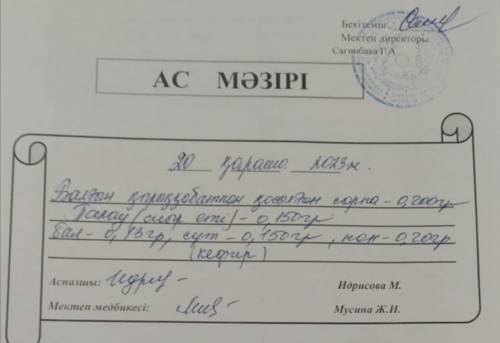 Бекітемін:
Мектеп директоры
Сагинбаева Г.А.
АС МӘЗІРІ
20 қараша 2023ж.
сорпа - 0,200гр
Палау (сиыр еті) - 0,150гр
бал - 0,13гр, сүт - 0,150гр, нан - 0,20гр
(кефир)
Аспазшы: Идрисова М.
Мектеп медбикесі: Мусина Ж.И.